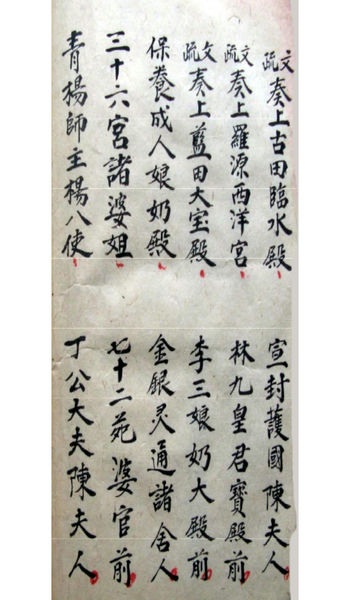 文疏奏上古田臨水殿 宣封護國陳夫人
文疏奏上羅源西洋宮 林九皇君寶殿前
文疏奏上藍田大宝殿 李三娘奶大殿前
保養成人娘奶殿 金銀灵通諸舍人
三十六宮諸婆姐 七十二苑婆官前
青楊師主楊八使 丁公大夫陳夫人